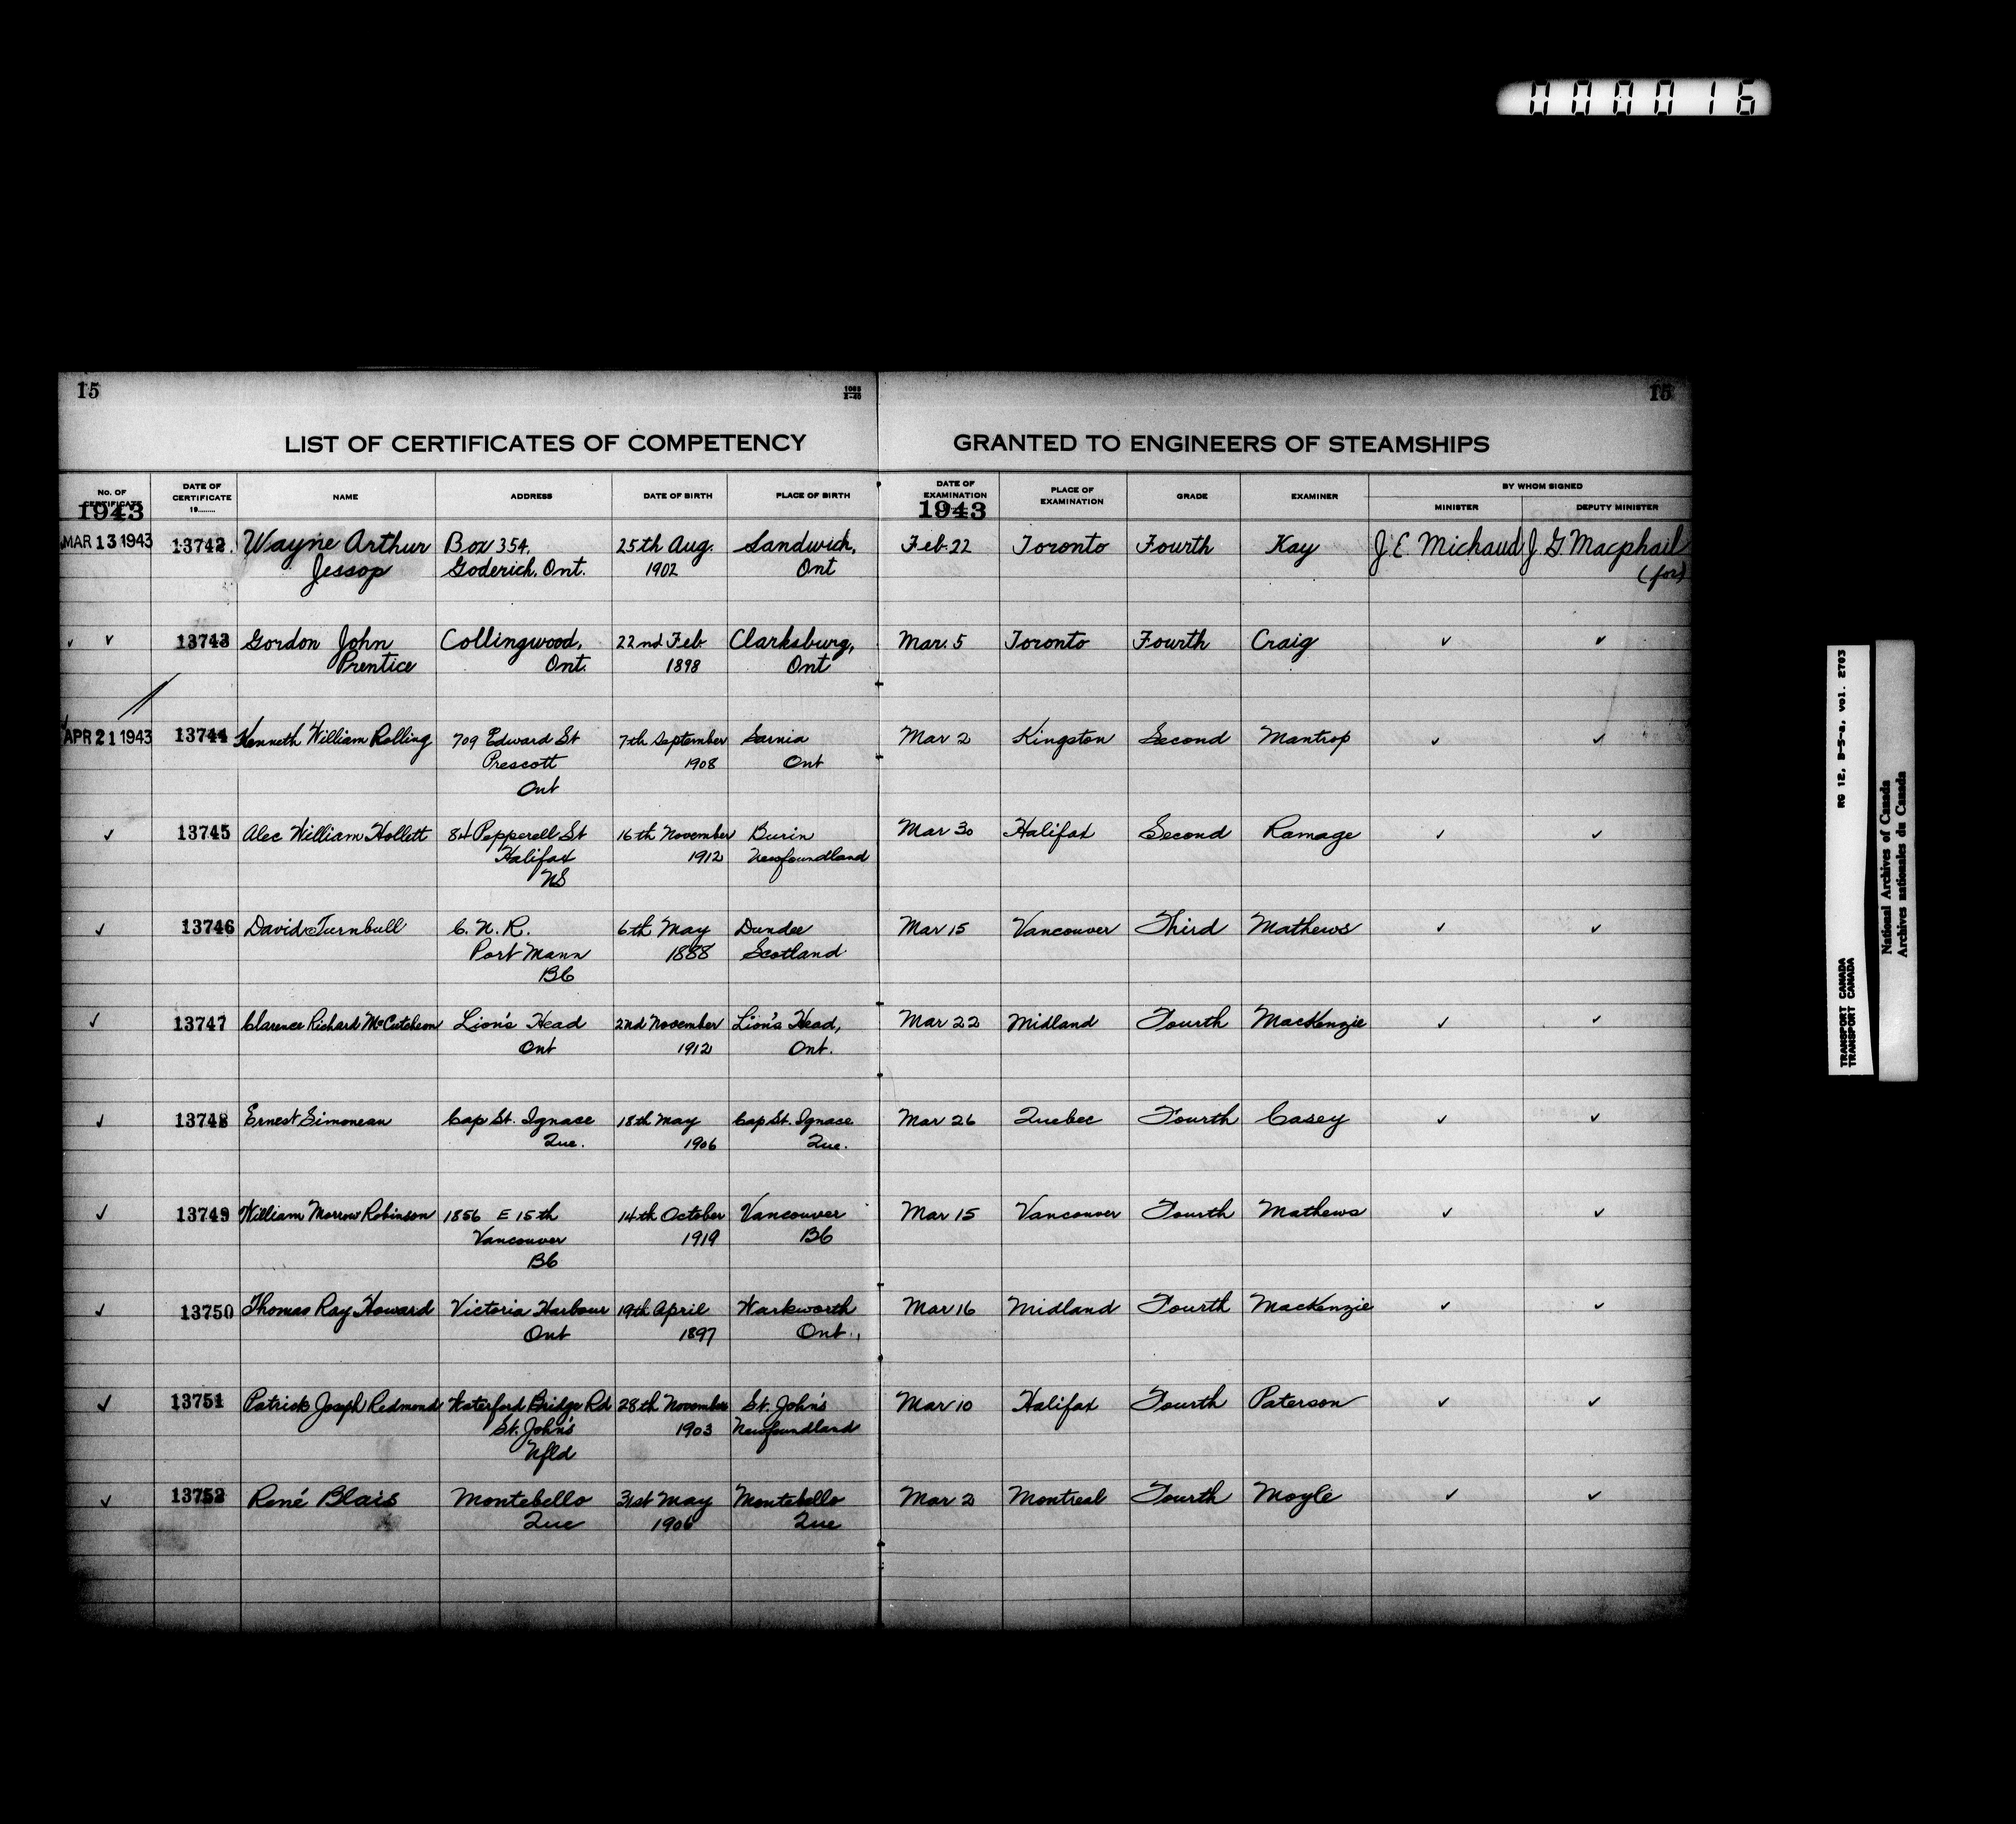 000016
15
1088
X-40
15
LIST OF CERTIFICATES OF COMPETENCY GRANTED TO ENGINEERS OF STEAMSHIPS
No. OF CERTIFICATE 1943
DATE OF CERTIFICATE 19........
NAME
ADDRESS
DATE OF BIRTH
PLACE OF BIRTH
DATE OF EXAMINATION 1943
PLACE OF EXAMINATION
GRADE
EXAMINER
BY WHOM SIGNED
MINISTER
DEPUTY MINISTER
MAR 13 1943 13742 Wayne Arthur Box 354, 25th Aug. Sandwich, Feb. 22 Toronto Fourth Kay J. E. Michaud J. G. Macphail
Jessop Goderich, Ont. 1902 Ont (for)
✓ ✓ 13743 Gordon John Collingwood, 22nd Feb. Clarksburg, Mar. 5 Toronto Fourth Craig ✓ ✓
Prentice Ont. 1898 Ont
APR 21 1943 13744 Kenneth William Rolling 709 Edward St 7th September Sarnia Mar 2 Kingston Second Mantrop ✓ ✓
Prescott 1908 Ont
Ont
✓ 13745 Alec William Hollett 84 Pepperell St 16th November Burin Mar 30 Halifax Second Ramage ✓ ✓
Halifax 1912 Newfoundland
NS
✓ 13746 David Turnbull C. N. R. 6th May Dundee Mar 15 Vancouver Third Mathews ✓ ✓
Port Mann 1888 Scotland
BC
✓ 13747 Clarence Richard McCutcheon Lion's Head 2nd November Lion's Head, Mar 22 Midland Fourth MacKenzie ✓ ✓
Ont 1912 Ont.
✓ 13748 Ernest Simoneau Cap St. Ignace 18th May Cap St. Ignace Mar 26 Quebec Fourth Casey ✓ ✓
Que. 1906 Que.
✓ 13749 William Morrow Robinson 1856 E 15th 14th October Vancouver Mar 15 Vancouver Fourth Mathews ✓ ✓
Vancouver 1919 BC
BC
✓ 13750 Thomas Ray Howard Victoria Harbour 19th April Warkworth Mar 16 Midland Fourth MacKenzie ✓ ✓
Ont 1897 Ont.
✓ 13751 Patrick Joseph Redmond Waterford Bridge Rd 28th November St. John's Mar 10 Halifax Fourth Paterson ✓ ✓
St. John's 1903 Newfoundland
Nfld
✓ 13752 René Blais Montebello 31st May Montebello Mar 2 Montreal Fourth Moyle ✓ ✓
Que 1906 Que
TRANSPORT CANADA RG 12, B-5-a, vol. 2703
TRANSPORT CANADA
National Archives of Canada
Archives nationales du Canada